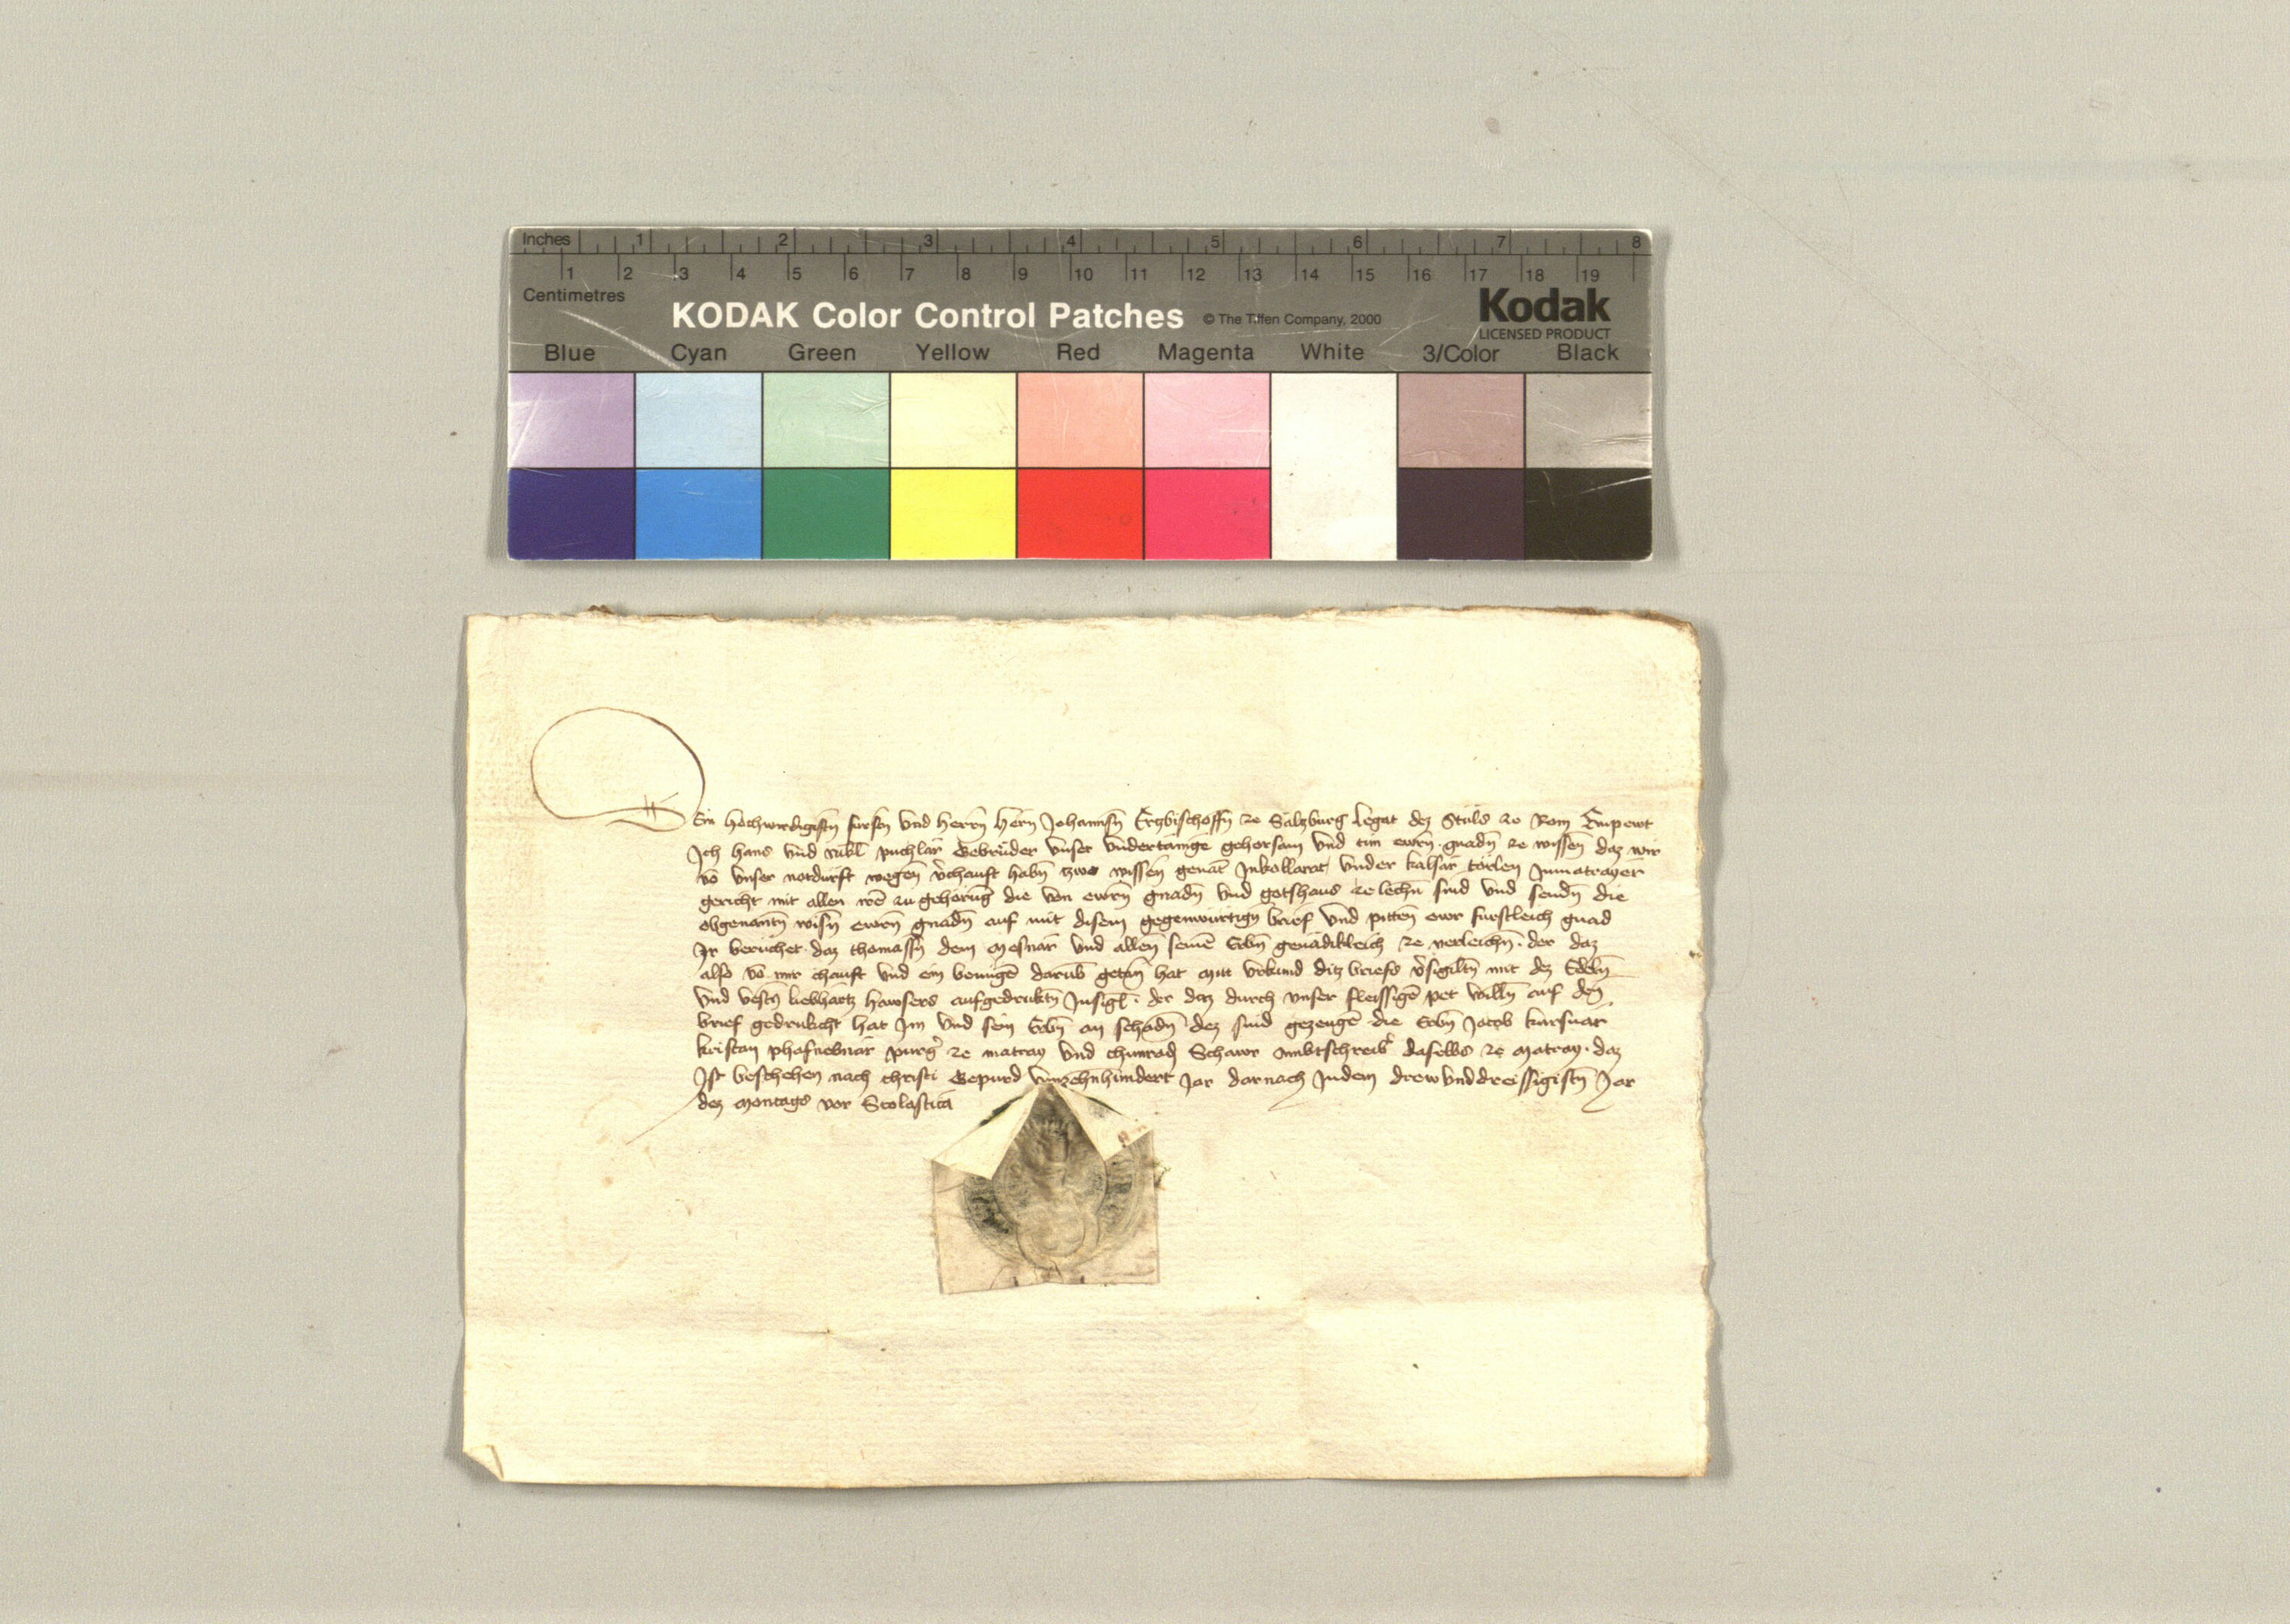 Inches 1 2 3 4 5 6 7 8
1 2 3 4 5 6 7 8 9 10 11 12 13 14 15 16 17 18 19
Centimetres
KODAK Color Control Patches © The Tiffen Company, 2000 Kodak
LICENSED PRODUCT
Blue Cyan Green Yellow Red Magenta White 3/Color Black
Dem hochwirdigistn fursten und herrn hern Johannsn Erczbischoffn ze Salzburg legat dez Stuls ze Rom Empewt
Ich hans und puchlar Gebruder unser undertainge gehorsam und tun ewrn gnadn ze wissen daz wir
vō unser notdurft wegen v̄chauft habn zwo wissen genāt under kalsar torlen Inmatrayer
gericht mit allen zugehorūg die von ewrn gnadn und gotshaus ze lechn sind und sendn die
obgenantn wisn ewrn gnadn auf mit disem gegenwurtign brief und pitten ewr furstleich gnad
Ir beruchet daz thomassn dem Mesnar und allen seinē Erbn genadikleich ze verleichn. der daz
also vō mir chauft und ein benugē darūb getan hat Mit urkund ditz briefs v̄sigiltn mit dez Edeln
und vestn liebhartz hawsers aufgedruktn Insigl. der daz durch unser fleissige pet willn auf den
brief gedrukcht hat Im und sein Erbn an schadn dez sind gezeugē die Erbn Jacob kursnar
kristan phafnebnar purḡ ze matray und chunrad Schawr Ambtschreib̄ daselbs ze Matray. daz
Ist beschehen nach christi Gepurd virzehnhundert Jar darnach Indem drewunddreissigistn Jar
dez Montags vor Scolastica